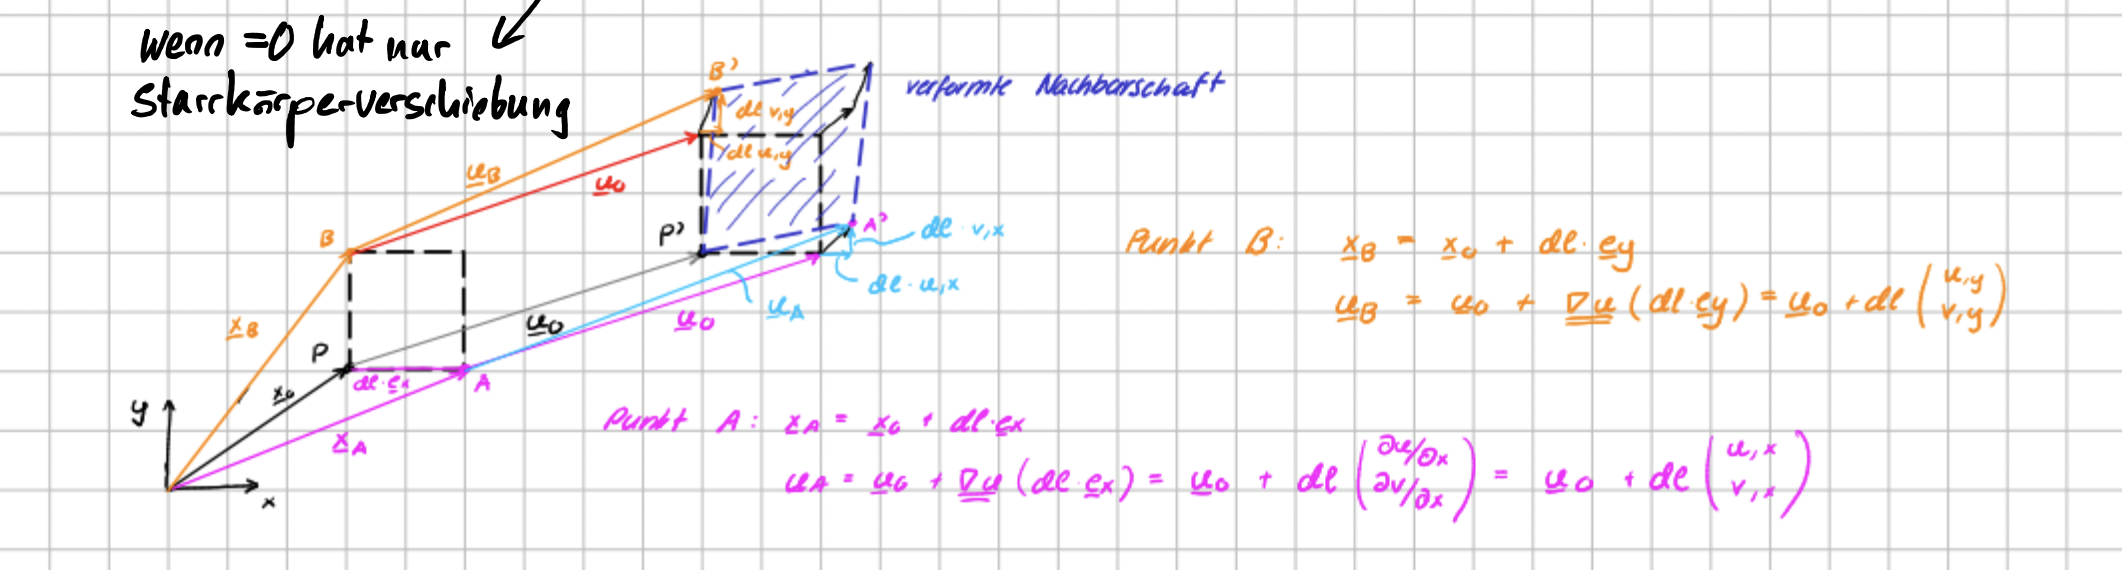 wenn =0 hat nur
Starrkörperverschiebung
B'
verformte Nachbarschaft
dl v,y
dl u,y
u_B
u_0
P'
A'
dl · v,x
dl · u,x
u_A
u_0
u_0
B
x_B
P
x_0
dl·e_x
A
x_A
y
x
Punkt B: x_B = x_0 + dl · e_y
u_B = u_0 + ∇u (dl · e_y) = u_0 + dl (u,y v,y)
Punkt A: x_A = x_0 + dl · e_x
u_A = u_0 + ∇u (dl · e_x) = u_0 + dl (∂u/∂x ∂v/∂x) = u_0 + dl (u,x v,x)